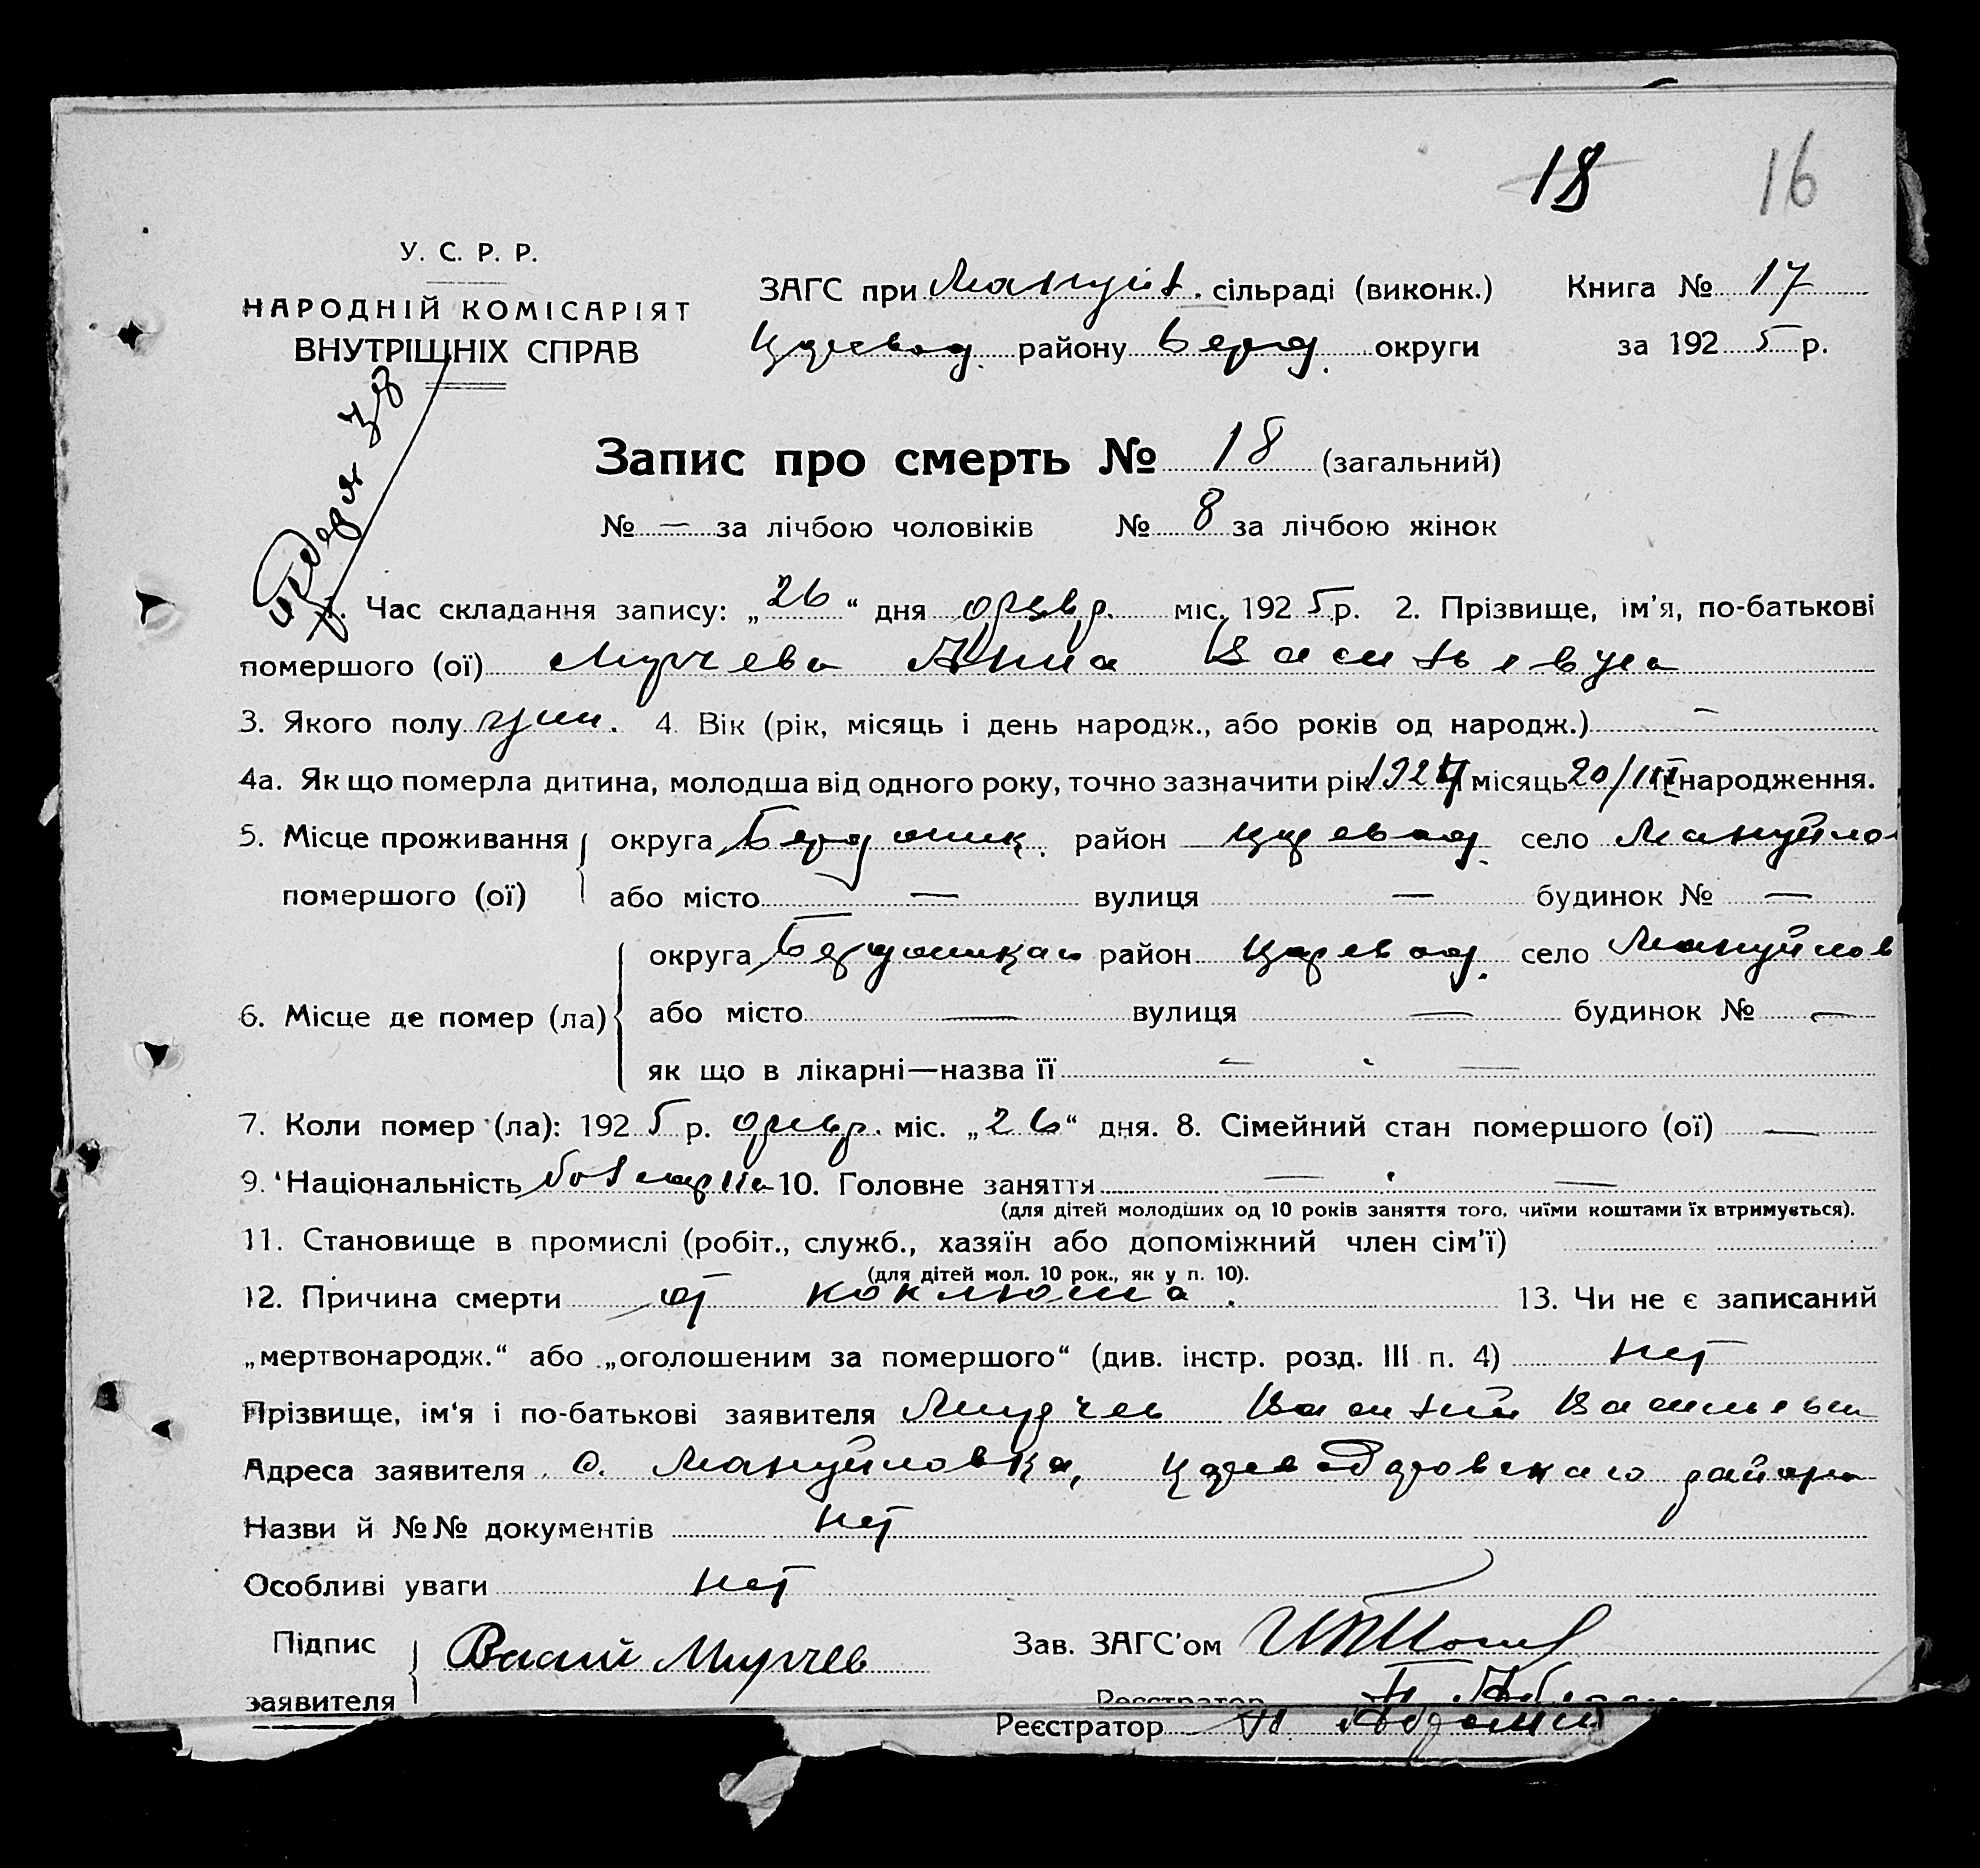 18 16
У. С. Р. Р.
НАРОДНІЙ КОМІСАРІЯТ
ВНУТРІШНІХ СПРАВ
ЗАГС при Мануйл. сільраді (виконк.) Книга № 17
Царевод. району Берд. округи за 1925 р.
Запис про смерть № 18 (загальний)
№ — за лічбою чоловіків № 8 за лічбою жінок
1. Час складання запису: „26“ дня февр. міс. 1925 р. 2. Прізвище, ім'я, по-батькові
помершого (ої) Мурчева Анна Васильевна
3. Якого полу жен. 4. Вік (рік, місяць і день народж., або років од народж.) —
4а. Як що померла дитина, молодша від одного року, точно зазначити рік 1924 місяць 20/III народження.
5. Місце проживання округа Бердянск. район Царевод. село Мануйло
помершого (ої) або місто — вулиця — будинок № —
округа Бердянская район Царевод. село Мануйлов
6. Місце де помер (ла) або місто — вулиця — будинок № —
як що в лікарні—назва її — —
7. Коли помер (ла): 1925 р. февр. міс. „26“ дня. 8. Сімейний стан помершого (ої) —
9. Національність болгарка 10. Головне заняття — —
(для дітей молодших од 10 років заняття того, чиїми коштами їх втримується).
11. Становище в промислі (робіт., служб., хазяїн або допоміжний член сім'ї)
(для дітей мол. 10 рок., як у п. 10).
12. Причина смерти от коклюша. 13. Чи не є записаний
„мертвонародж.“ або „оголошеним за помершого“ (див. інстр. розд. III п. 4) нет
Прізвище, ім'я і по-батькові заявителя Мурчев Василий Васильевич
Адреса заявителя с. Мануйловка, Цареводаровскаго района
Назви й №№ документів нет
Особливі уваги нет
Підпис Васий Мурчев Зав. ЗАГС'ом
заявителя Реєстратор
Реєстратор